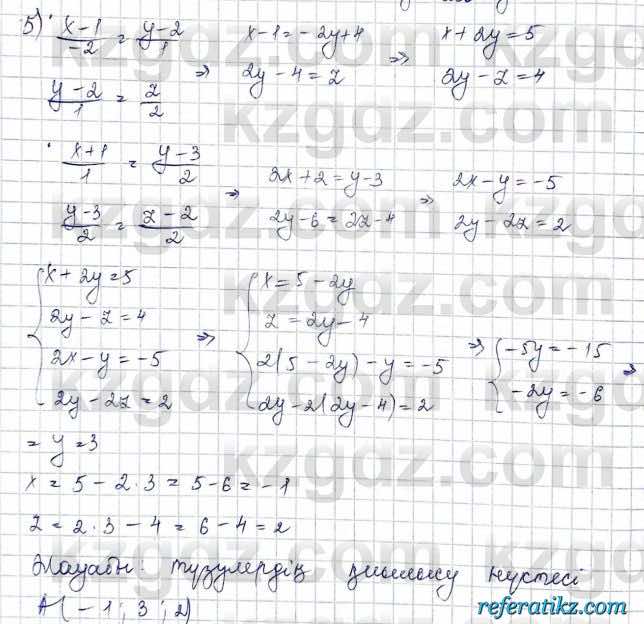 5) x-1/-2 = y-2/1 x-1=-2y+4 x+2y=5
y-2/1 = z/2 ⇒ 2y-4=z ⇒ 2y-z=4
x+1/1 = y-3/2 2x+2=y-3 2x-y=-5
y-3/2 = z-2/2 ⇒ 2y-6=2z-4 ⇒ 2y-2z=2
{ x+2y=5 { x=5-2y
2y-z=4 z=2y-4
2x-y=-5 ⇒ 2(5-2y)-y=-5 ⇒ { -5y=-15
2y-2z=2 2y-2(2y-4)=2 -2y=-6 ⇒
= y=3
x = 5-2·3 = 5-6 = -1
z = 2·3-4 = 6-4 = 2
Жауабы: түзулердің қиылысу нүктесі
A(-1; 3; 2)
kzgdz.com
referatikz.com